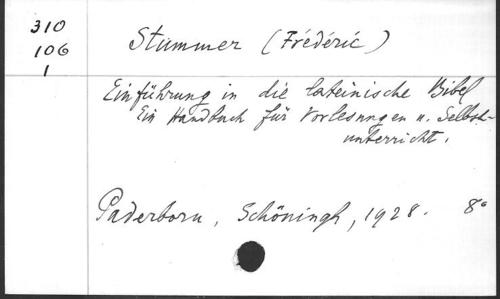 310
106
1
Stummer (Frédéric)
Einführung in die lateinische Bibel
Ein Handbuch für Vorlesungen u. Selbst-
unterricht.
Paderborn, Schöningh, 1928. 8°